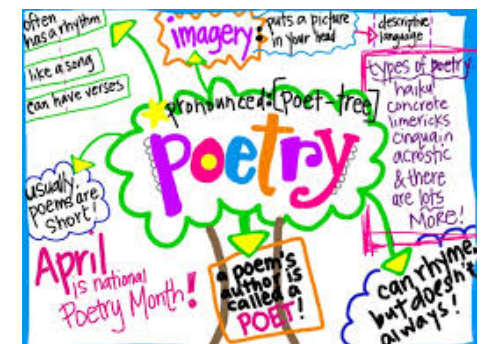 often
has a rhythm
like a song
can have verses
imagery:
puts a picture
in your head
descriptive
language
types of poetry
haiku
concrete
limericks
cinquain
acrostic
& there
are lots
MORE!
pronounced:[poet-tree]
poetry
usually,
poems are
short!
April
is national
Poetry Month!
a poem's
author is
called a
POET!
can rhyme,
but doesn't
always!